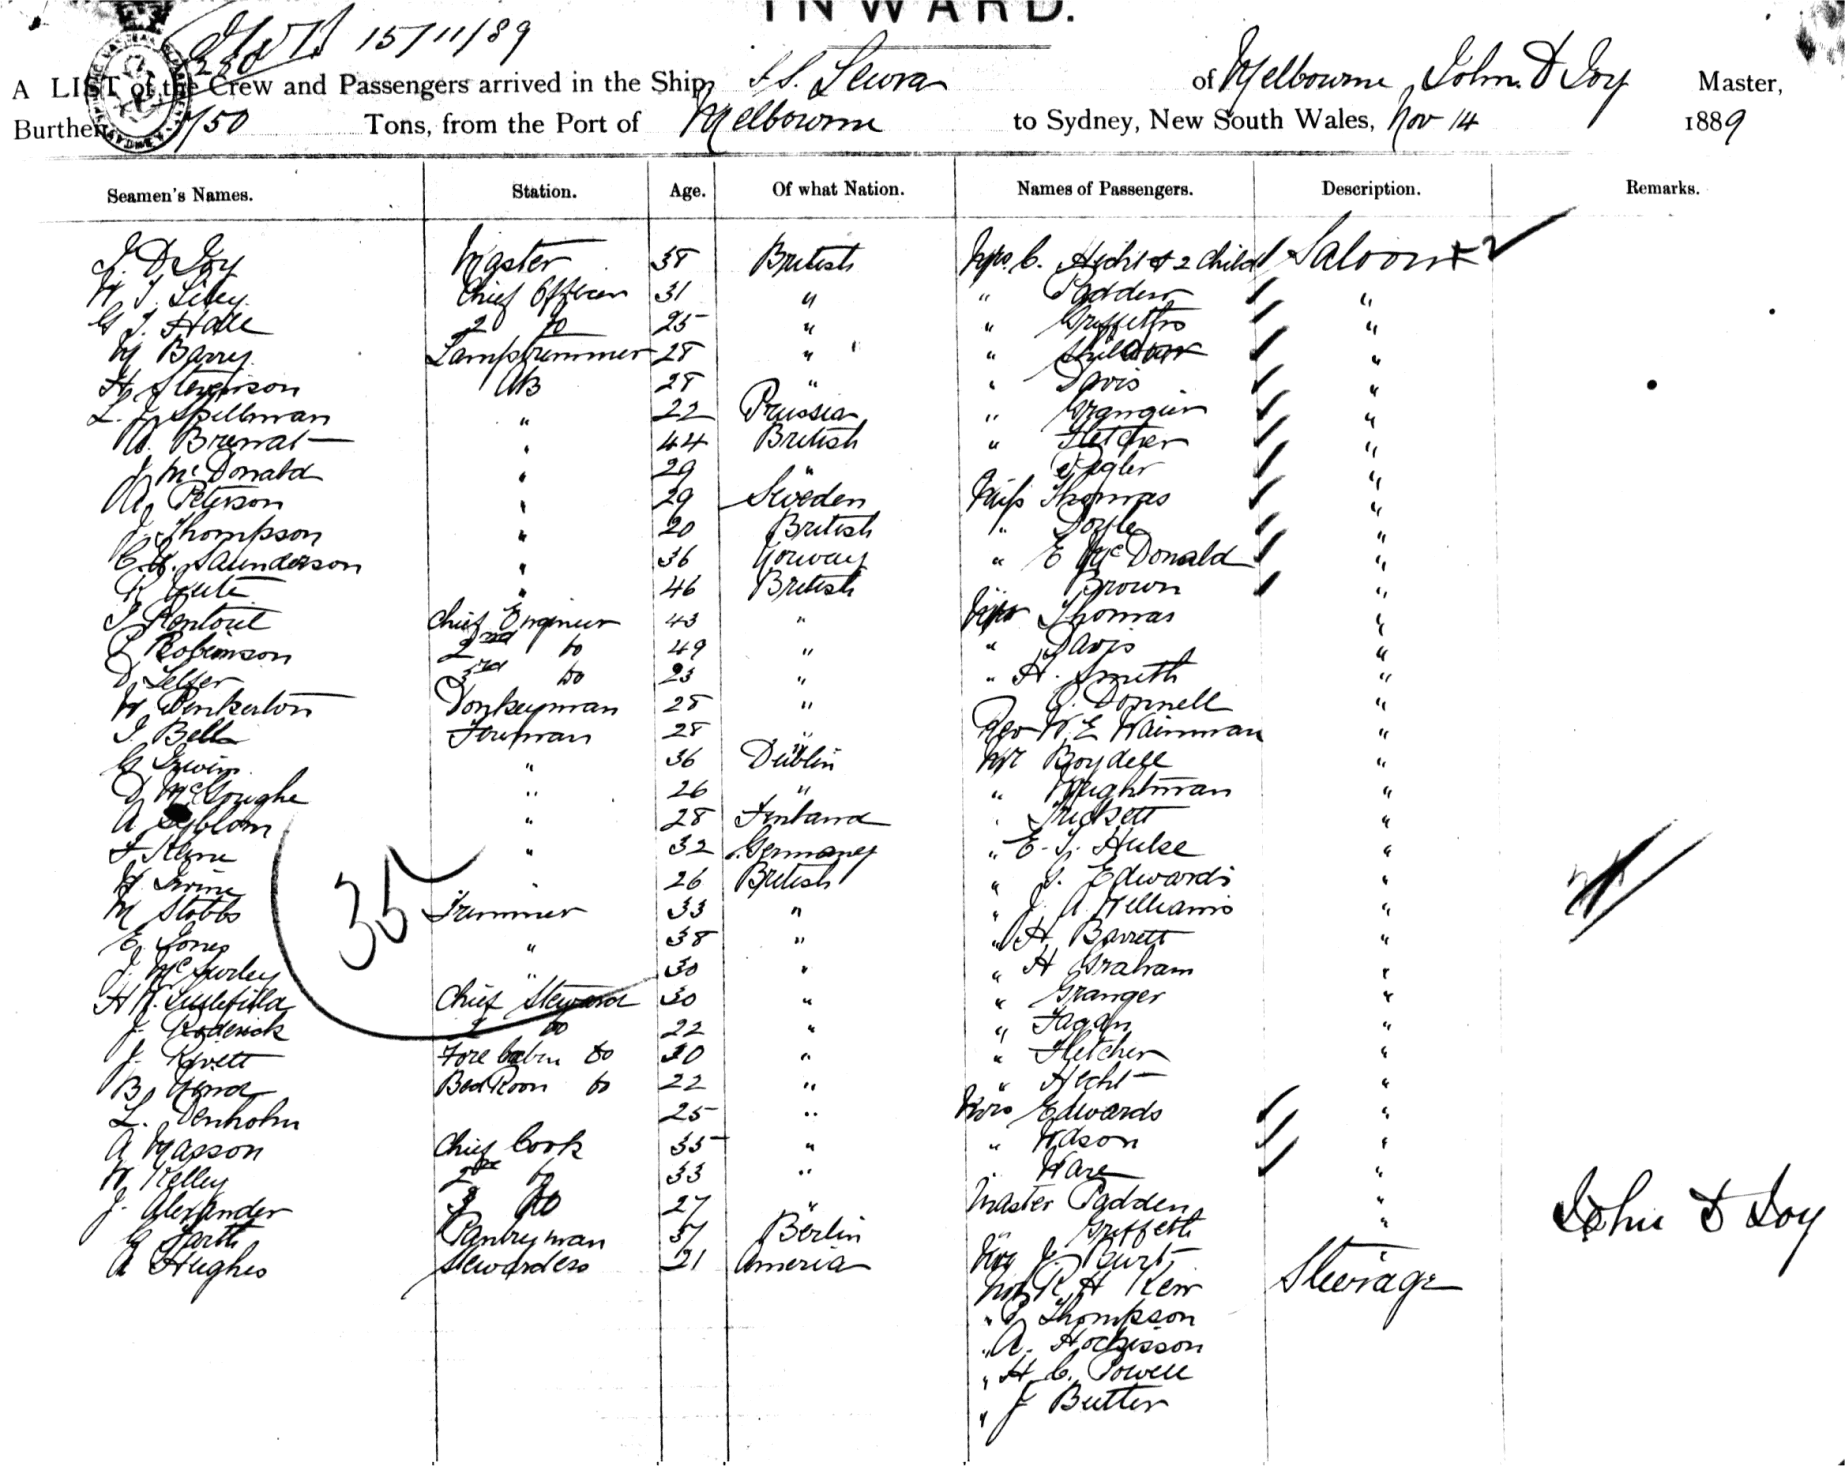 INWARD.
15/11/89
A LIST of the Crew and Passengers arrived in the Ship, S.S. of Melbourne, John D Joy Master,
Burthen Tons, from the Port of Melbourne to Sydney, New South Wales, Nov 14 1889
Seamen's Names. Station. Age. Of what Nation. Names of Passengers. Description. Remarks.
J D Joy Master 38 British Mrs. C. Hecht & 2 Child Saloon
W. J. Chief Officer 31 " " Padden "
G J. Hall 2 Do 25 " " Griffiths "
M Barry Lamptrimmer 28 " " "
H Stevenson AB 28 " " Davis "
L. J. Spellman " 22 Prussia " Grangier "
" 44 British " Fletcher "
J McDonald " 29 " "
A Peterson " 29 Sweden Miss Thomas "
J. Thompson " 20 British " Doyle "
C. H. Saunderson " 36 Norway " E McDonald "
" 46 British " Brown "
J Rentoul Chief Engineer 43 " Thomas "
Robinson 2nd Do 49 " " Davis "
D. Telfer 3rd Do 23 " " H. Smith "
W Pinkerton Donkeyman 28 " O. Donnell "
J. Bell Fireman 28 " Rev W. E Wainman "
G Irwin " 36 Dublin Mr Boydell "
D " 26 " " Wightman "
A " 28 Finland " Trickett "
F " 32 Germaney " E. J. Hulse "
W Irvine " 26 British " J. Edwards "
M Stobbs Trimmer 33 " " J. A. Williams "
E Jones " 38 " " H. Barrett "
J. " 30 " " H Graham "
H Chief Steward 30 " " Granger "
J. Roderick 2 Do 22 " " Fagan "
J. Rivett Fore Cabin Do 30 " " Fletcher "
B Bed Room Do 22 " " Hecht "
L. Denholm 25 " Mrs Edwards "
A Masson Chief Cook 35 " " "
W Kelley 2nd Do 33 " " Ware "
J. Alexander 3 Do 27 " Master Padden "
G Garth Pantryman 37 Berlin " Griffeth "
A Hughes Stewardess 21 America J. Burt Steerage
R H Keir
" Thompson
" A. Hodgisson
" H. C. Powell
" J Butler
35
John D Joy